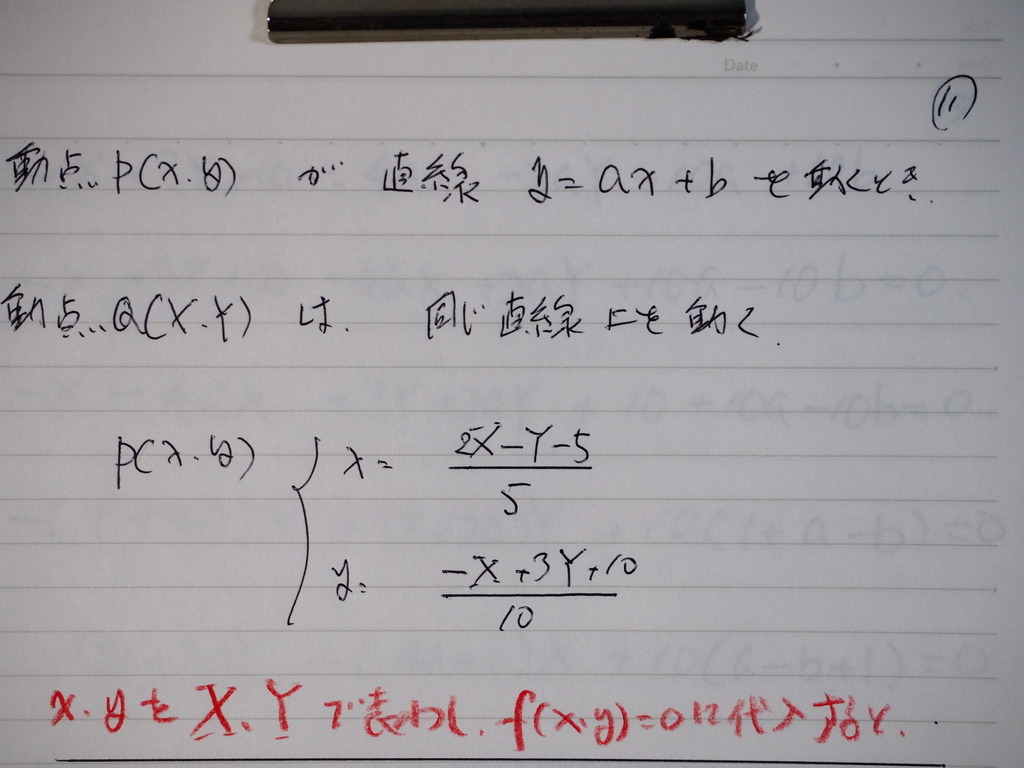 Date
(11)
動点 P(x.y) が 直線 y=ax+b を動くとき.
動点 Q(X.Y) は. 同じ直線上を動く.
P(x.y) { x= (2X-Y-5)/5
y= (-X+3Y+10)/10
x.yを X.Y で表わし. f(x.y)=0に代入すると.